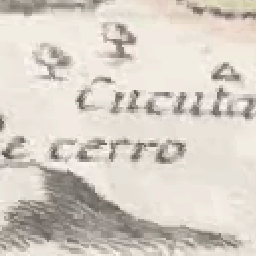 Cucuta
e cerro